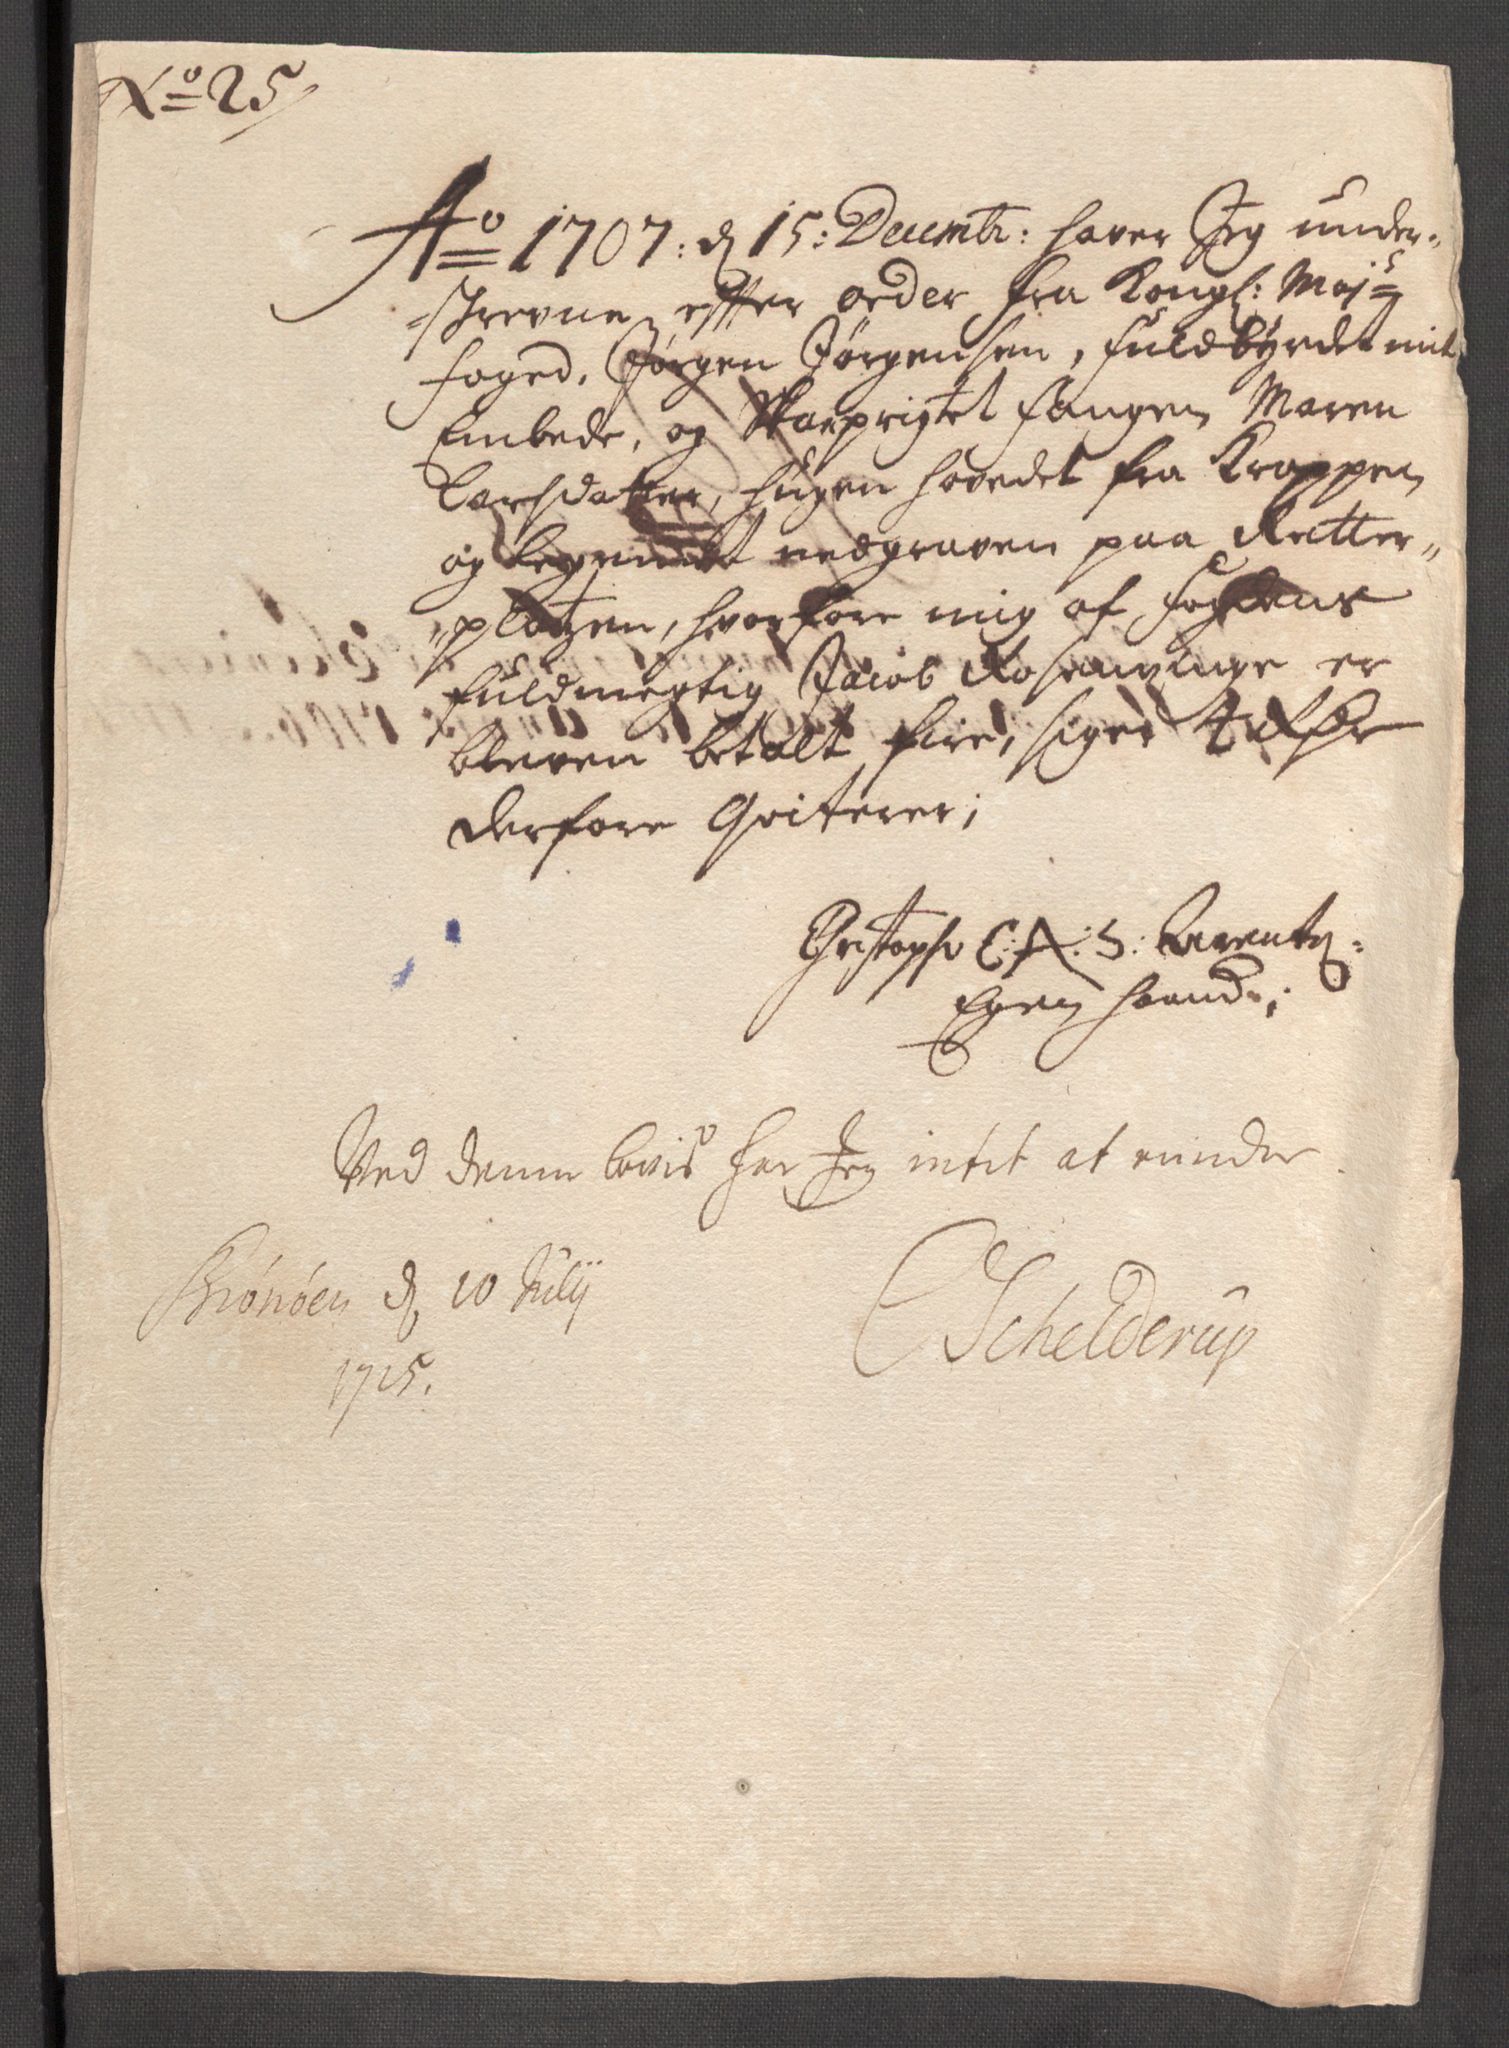 No 25
Ao 1707: d 15: Decembr: haver Jeg under-
-skrevne efter order fra Kongl: Majts
foged, Jørgen Jørgensen, fuldbyrdet mit
Embede, og Skarprigtet fangen Maren
Larsdatter, hugen hovedet fra Kroppen
og legemet nedgraven paa Retter-
-platzen, hvorfore mig af fogdens
fuldmegtig Jacob er
bleven betalt fire, siger 4 Rdr
derfore Qviterer;
Christoph C: A: S: Lorentz
Egen haand;
Ved denne bevis har Jeg intet at minde
Brønøen d. 10 Julij
1715.
C Schelderup